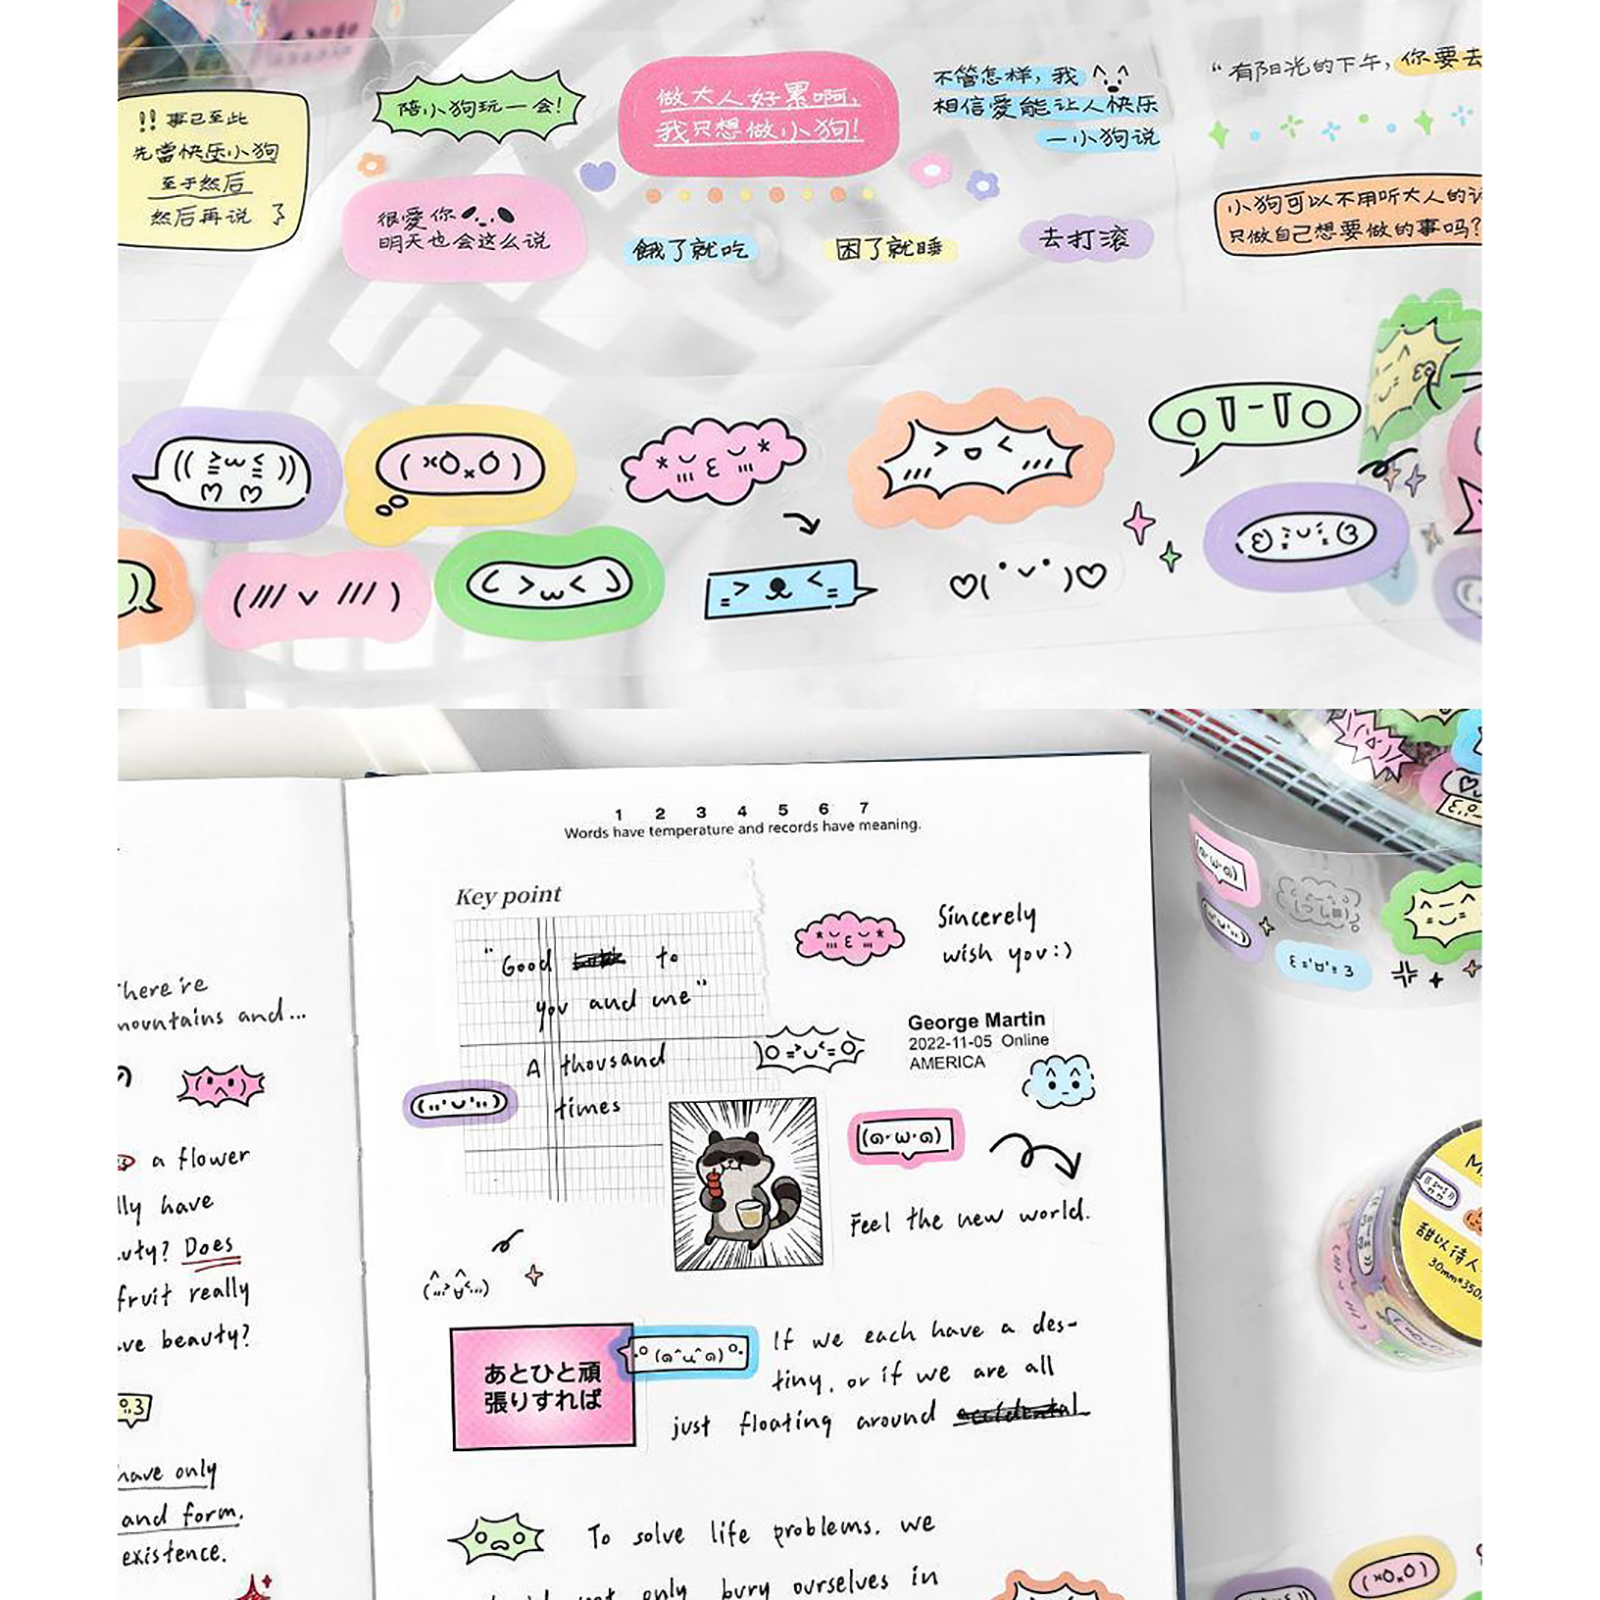 !! 事已至此
先當快乐小狗
至于然后
然后再说
陪小狗玩一会!
很爱你
明天也会这么说
做大人好累啊,
我只想做小狗!
餓了就吃
困了就睡
不管怎样,我
相信爱能让人快乐
一小狗说
去打滚
“有阳光的下午,你要去
小狗可以不用听大人的
只做自己想要做的事吗?
1 2 3 4 5 6 7
Words have temperature and records have meaning.
Key point
"Good to
you and me"
A thousand
times
Sincerely
wish you:)
George Martin
2022-11-05 Online
AMERICA
Feel the new world.
あとひと頑
張りすれば
If we each have a des-
tiny, or if we are all
just floating around accidental
To solve life problems, we
not only bury ourselves in
here're
mountains and...
a flower
lly have
uty? Does
fruit really
ve beauty?
have only
and form.
existence.
甜以待人